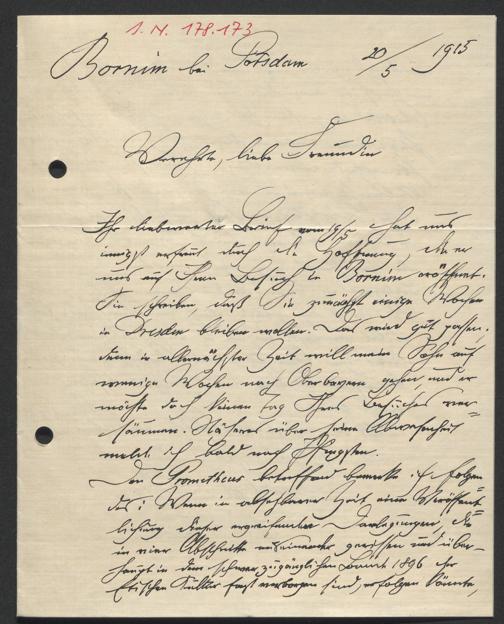 I. N. 178.173
Bornim bei Potsdam 20/5 1915
Verehrte, liebe Freundin
Ihr liebwerter Brief vom 19/5 hat uns
innigst erfreut durch die Hoffnung, die er
uns auf Ihren Besuch in Bornim eröffnet.
Sie schreiben, daß Sie zunächst einige Wochen
in Dresden bleiben wollen. Das wird gut passen,
denn in allernächster Zeit will mein Sohn auf
wenige Wochen nach Oberbayern gehen, und er
möchte doch keinen Tag Ihres Besuches ver-
säumen. Näheres über seine Abwesenheit
melde ich bald nach Pfingsten.
Den Prometheus betreffend bemerke ich folgen
des: Wenn in absehbarer Zeit eine Veröffent
lichung dieser ergreifenden Darlegungen, die
in vier Abschnitte auseinander gerissen und über-
haupt in dem schwer zugänglichen Bande 1896 der
Ethischen Kultur fast verborgen sind, erfolgen könnte,